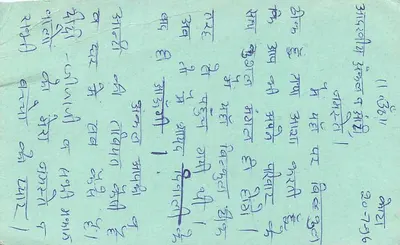 ॥ॐ॥
कोटा
20-7-96
आदरणीय अंकल व आंटी
नमस्ते।
मैं यहाँ पर बिल्कुल
ठीक हूँ तथा आशा करती हूँ
कि आप भी अपने परिवार के
साथ कुशल मंगल से होंगे।
मैं यहाँ बिल्कुल ठीक
तरह से पहुँच गयी थी।
अब तो मैं आपसे दिवाली के
बाद ही आऊंगी।
अंकल आपकी व
आन्टी की तबियत कैसी है।
व घर के सब कैसे हैं।
दीदी-जीजाजी व सभी मकान
वालों को मेरा नमस्ते व
बच्चों को प्यार।